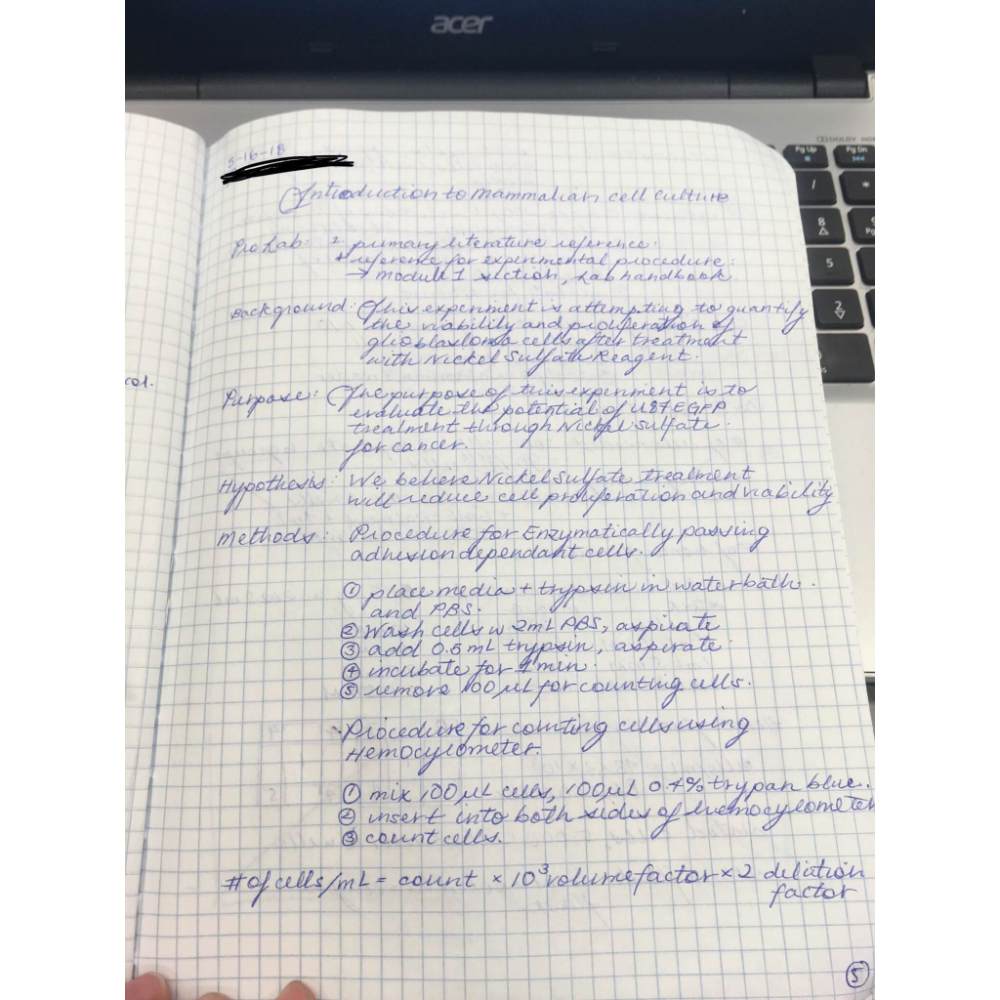 acer
Pg Up
Pg Dn
/
*
8
5
2
5-16-18
Introduction to mammalian cell culture
PreLab: + primary literature reference.
+ reference for experimental procedure:
→ module 1 section, Lab handbook
Background: This experiment is attempting to quantify
the viability and proliferation of
glioblastoma cells after treatment
with Nickel Sulfate Reagent.
col.
Purpose: The purpose of this experiment is to
evaluate the potential of U87EGFP
treatment through Nickel sulfate
for cancer.
Hypothesis: We believe Nickel Sulfate treatment
will reduce cell proliferation and viability
methods: Procedure for Enzymatically passing
adhesion dependant cells.
① place media + trypsin in waterbath.
and PBS.
② Wash cells w 2mL PBS, aspirate
③ add 0.5mL trypsin, aspirate
④ incubate for 1 min.
⑤ remove 100 µL for counting cells.
Procedure for counting cells using
Hemocytometer.
① mix 100 µL cells, 100 µL 0.4% trypan blue.
② insert into both sides of hemocytometer
③ count cells.
# of cells/mL = count × 10³ volume factor × 2 dilution
factor
⑤